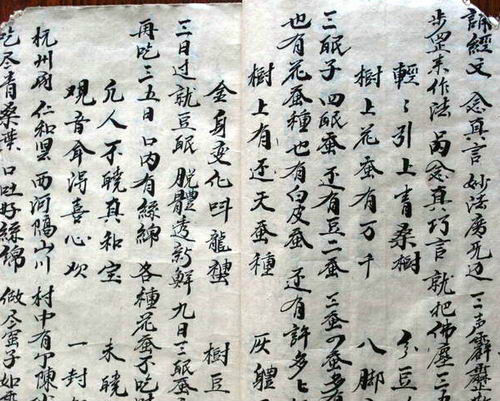 誦經文 念真言 妙法廣无边 三声霹靂
步罡未作法 忌念真巧言 就把佛
輕〻引上青桑樹 分豆
樹上花蚕有万千 八脚
三眠子 四眠蚕 还有豆二蚕 三蚕四蚕多
也有花蚕種也有白皮蚕 还有許多
樹上有还天蚕種 灰體
金身变化叫龍蚕 樹豆
三日过就豆眠 脱體透新鮮 九日三眠蚕
再吃三五日 口内有絲綿 各種花蚕不吃
凡人不曉真和宝 未曉
观音耷淂喜心欢 一封
杭州府 仁和里 西河隔山川 村中有 陳
吃尽青桑葉 口吐好絲綿 做尽蚕子如